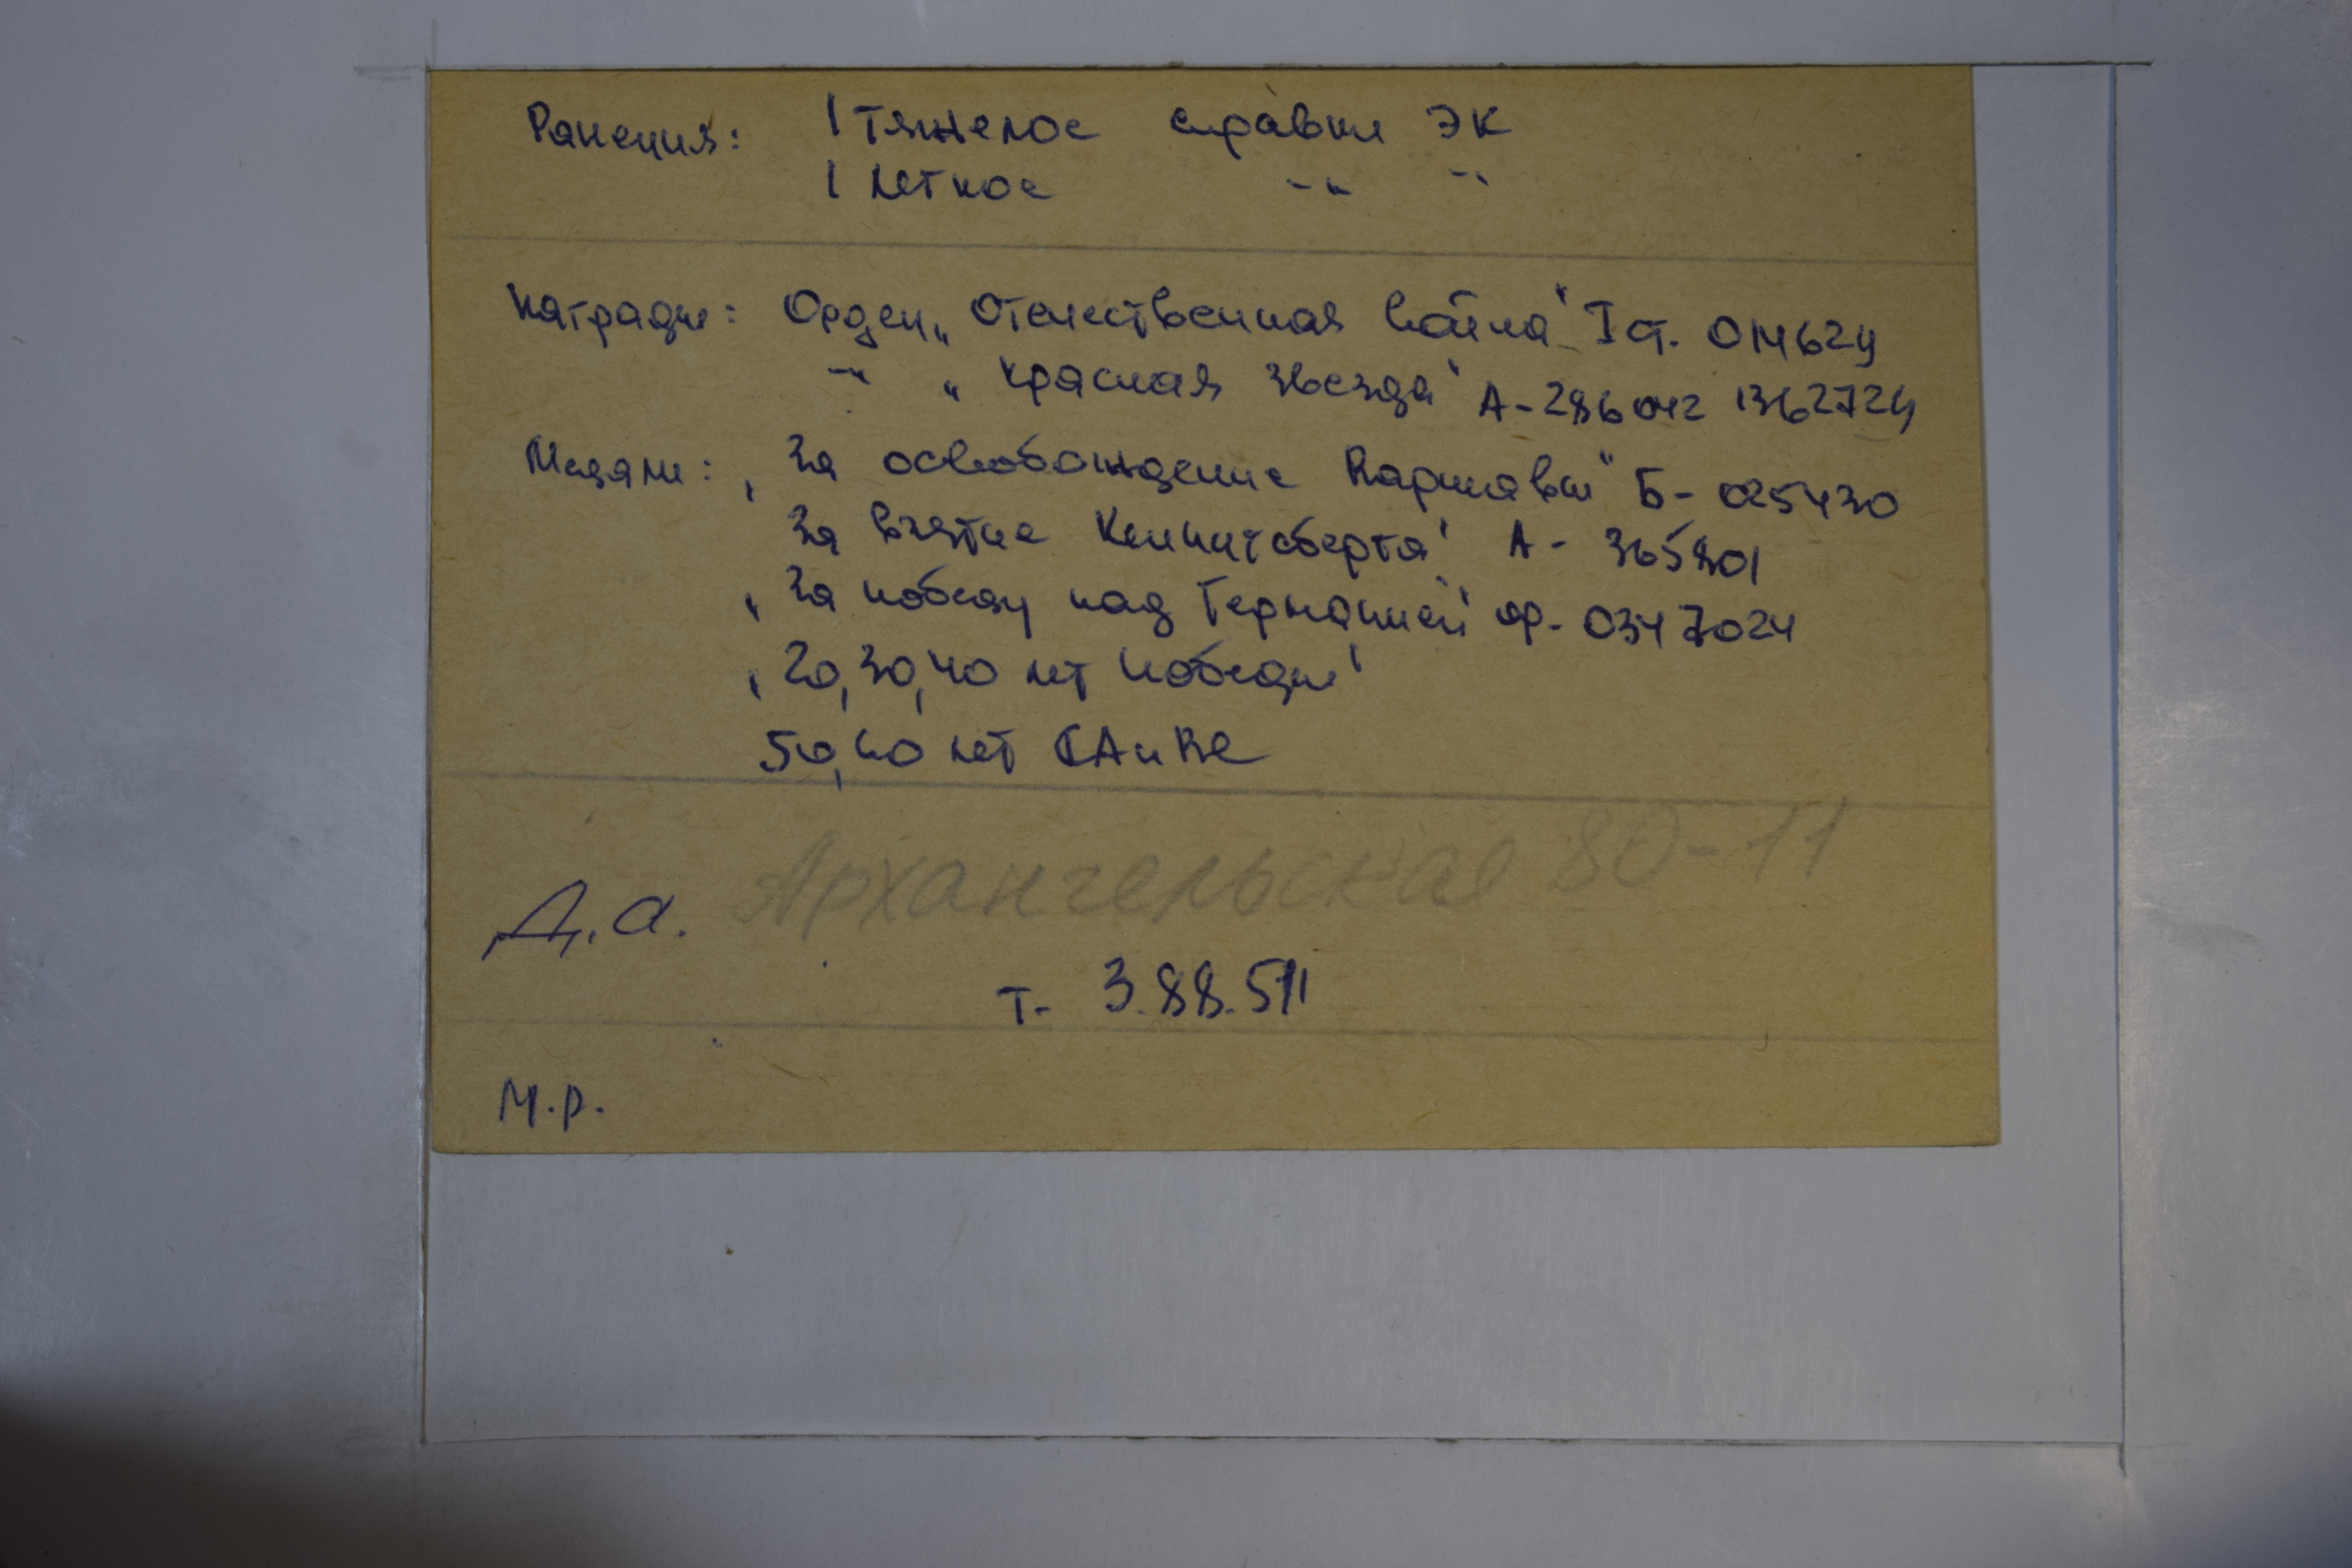 Ранения: 1 Тяжелое справки ЭК
1 легкое -"- -"-
Награды: Орден „Отечественная война" I ст. 014624
-"- „Красная Звезда" А-286042 1362724
Медали: „За освобождение Варшавы" Б-025430
За взятие Кенигсберга" А-365801
„За победу над Германией" ф-0347024
„20, 30, 40 лет Победы"
50, 60 лет СА и ВС
Д.а. Архангельская 80-11
т- 3.88.511
М.р.